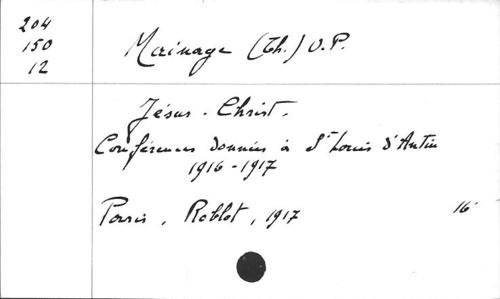 204
150
12
Mainage (Th.) O.P.
Jésus-Christ.
Conférences données à St Louis d'Antin
1916-1917
Paris, Roblot, 1917 16°